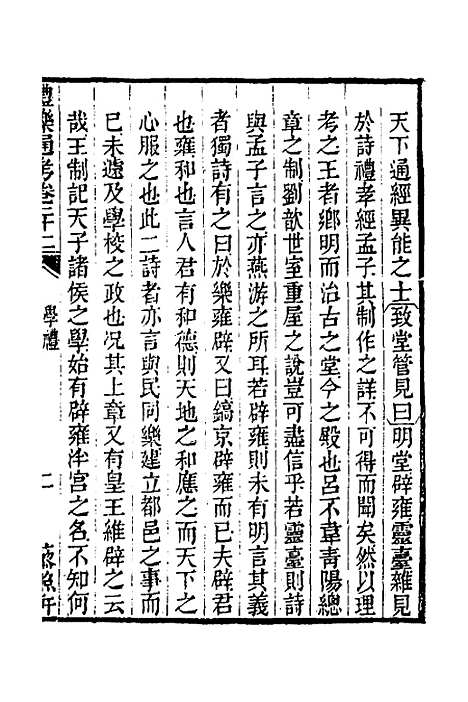 天下通經異能之士致堂管見曰明堂辟雍靈臺雜見
於詩禮孝經孟子其制作之詳不可得而聞矣然以理
考之王者鄉明而治古之堂今之殿也呂不韋青陽總
章之制劉歆世室重屋之說豈可盡信乎若靈臺則詩
與孟子言之亦燕游之所耳若辟雍則未有明言其義
者獨詩有之曰於樂雍辟又曰鎬京辟雍而已夫辟君
也雍和也言人君有和德則天地之和應之而天下之
心服之也此二詩者亦言與民同樂建立都邑之事而
已未遽及學校之政也況其上章又有皇王維辟之云
哉王制記天子諸侯之學始有辟雍泮宮之名不知何
禮樂通考卷二十二
學禮
二